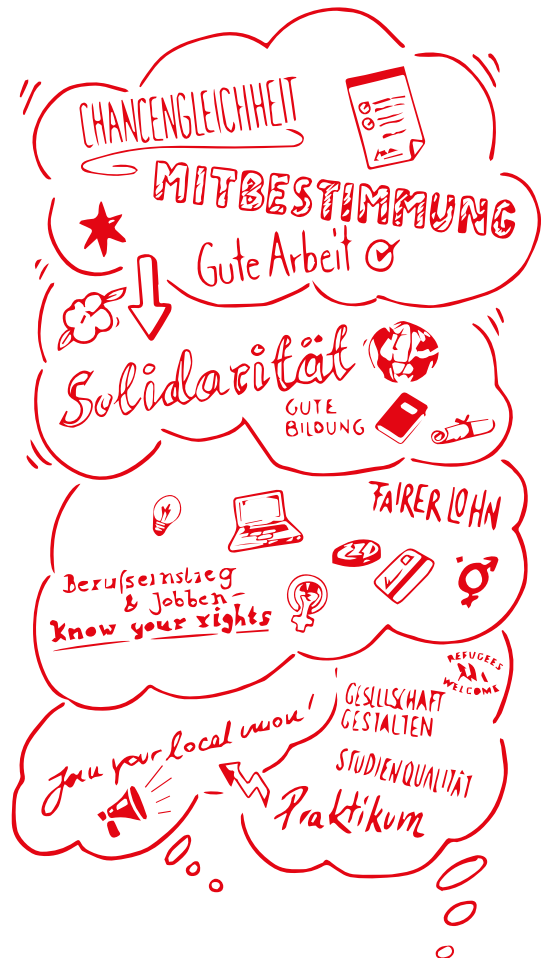 CHANCENGLEICHHEIT
MITBESTIMMUNG
Gute Arbeit
Solidarität
GUTE
BILDUNG
FAIRER LOHN
Berufseinstieg
& Jobben –
know your rights
REFUGEES
WELCOME
GESELLSCHAFT
GESTALTEN
Join your local union!
STUDIENQUALITÄT
Praktikum